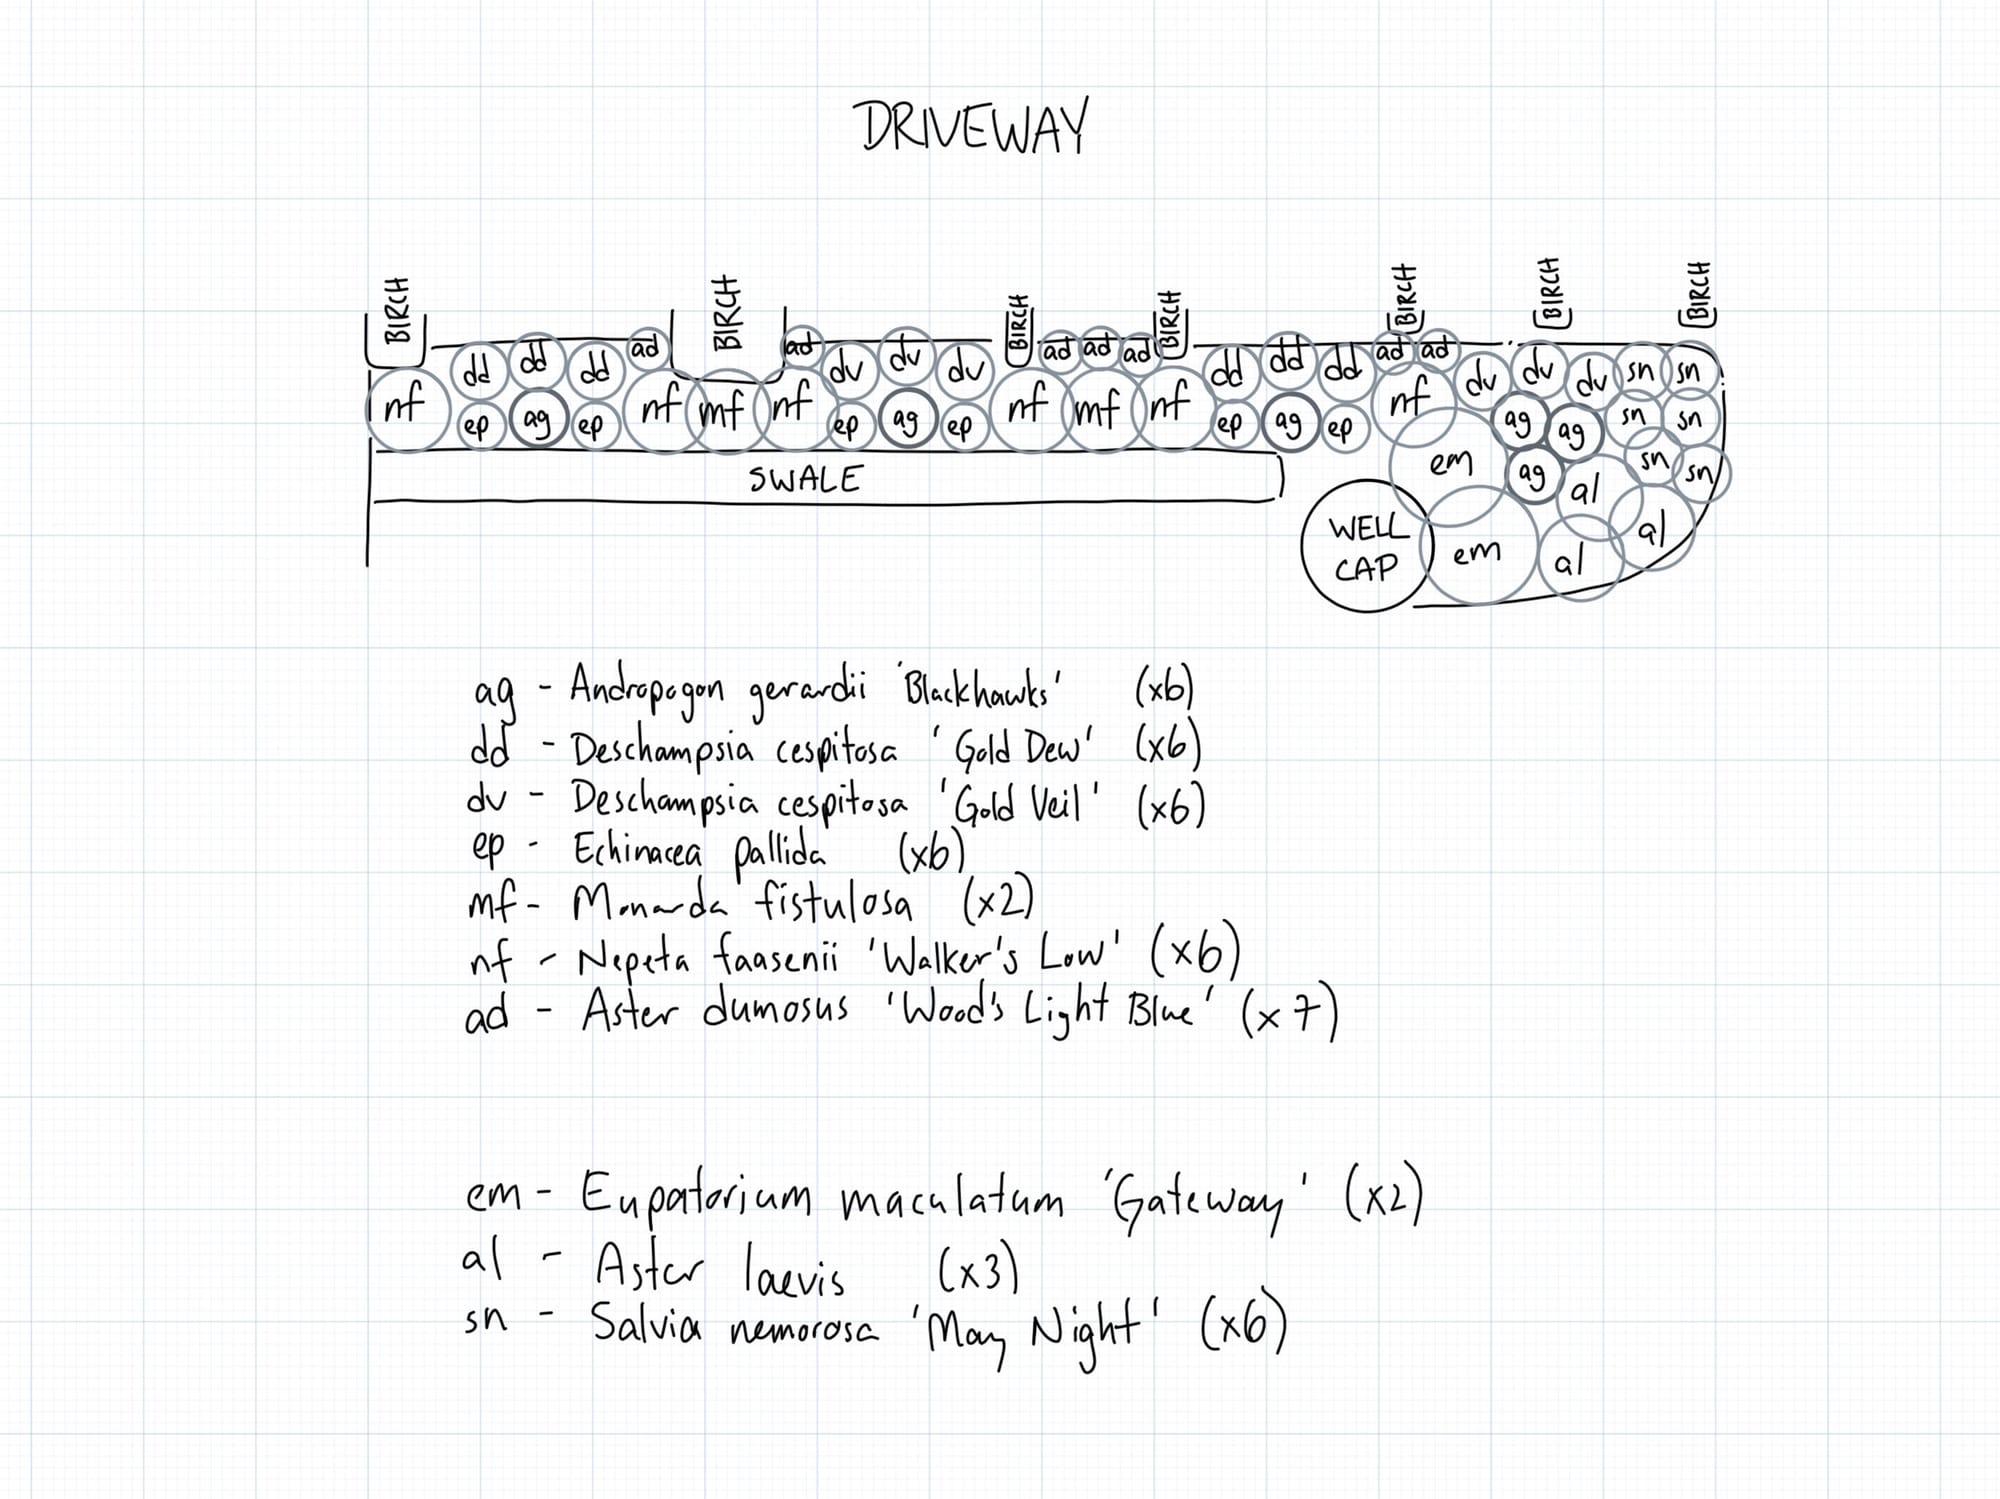 DRIVEWAY
BIRCH BIRCH BIRCH BIRCH BIRCH BIRCH BIRCH
dd dd dd ad ad dv dv dv ad ad ad dd dd dd ad ad dv dv dv sn sn
nf ep ag ep nf mf nf ep ag ep nf mf nf ep ag ep nf ag ag sn sn
em ag al sn sn
SWALE
WELL em al al
CAP
ag - Andropogon gerardii 'Blackhawks' (x6)
dd - Deschampsia cespitosa 'Gold Dew' (x6)
dv - Deschampsia cespitosa 'Gold Veil' (x6)
ep - Echinacea pallida (x6)
mf - Monarda fistulosa (x2)
nf - Nepeta faasenii 'Walker's Low' (x6)
ad - Aster dumosus 'Wood's Light Blue' (x7)
em - Eupatorium maculatum 'Gateway' (x2)
al - Aster laevis (x3)
sn - Salvia nemorosa 'May Night' (x6)